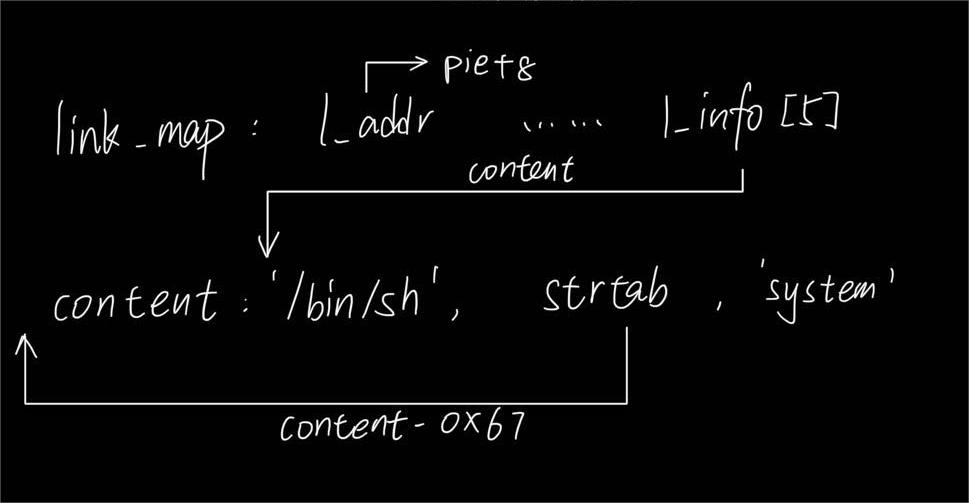 pie+8
link_map : l_addr ...... l_info [5]
content
content : '/bin/sh', strtab , 'system'
content - 0x67